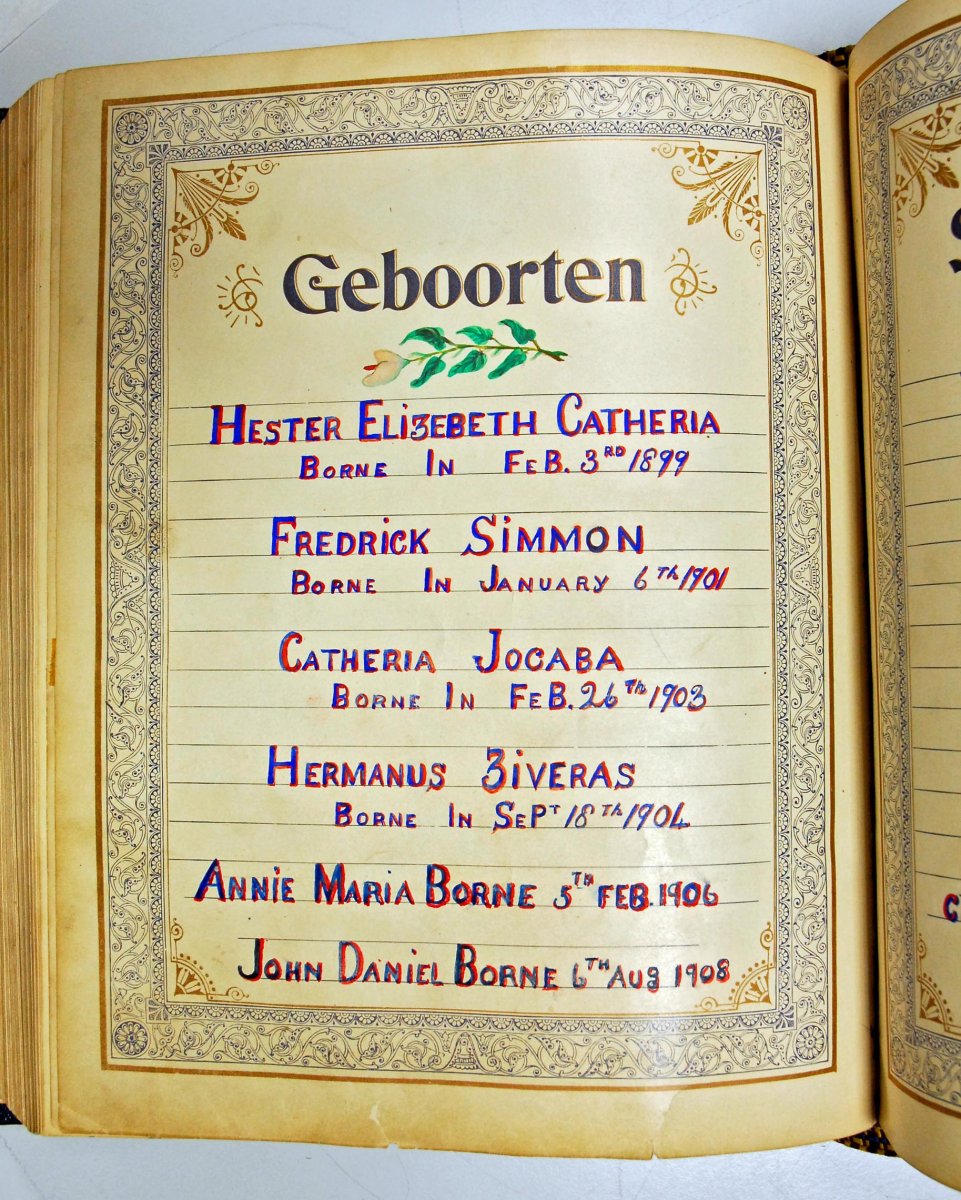 Geboorten
HESTER ELIZEBETH CATHERIA
BORNE IN FEB. 3RD 1899
FREDRICK SIMMON
BORNE IN JANUARY 6Th 1901
CATHERIA JOCABA
BORNE IN FEB. 26Th 1903
HERMANUS ZIVERAS
BORNE IN SEPT 18Th 1904
ANNIE MARIA BORNE 5TH FEB. 1906
JOHN DANIEL BORNE 6TH AUG 1908